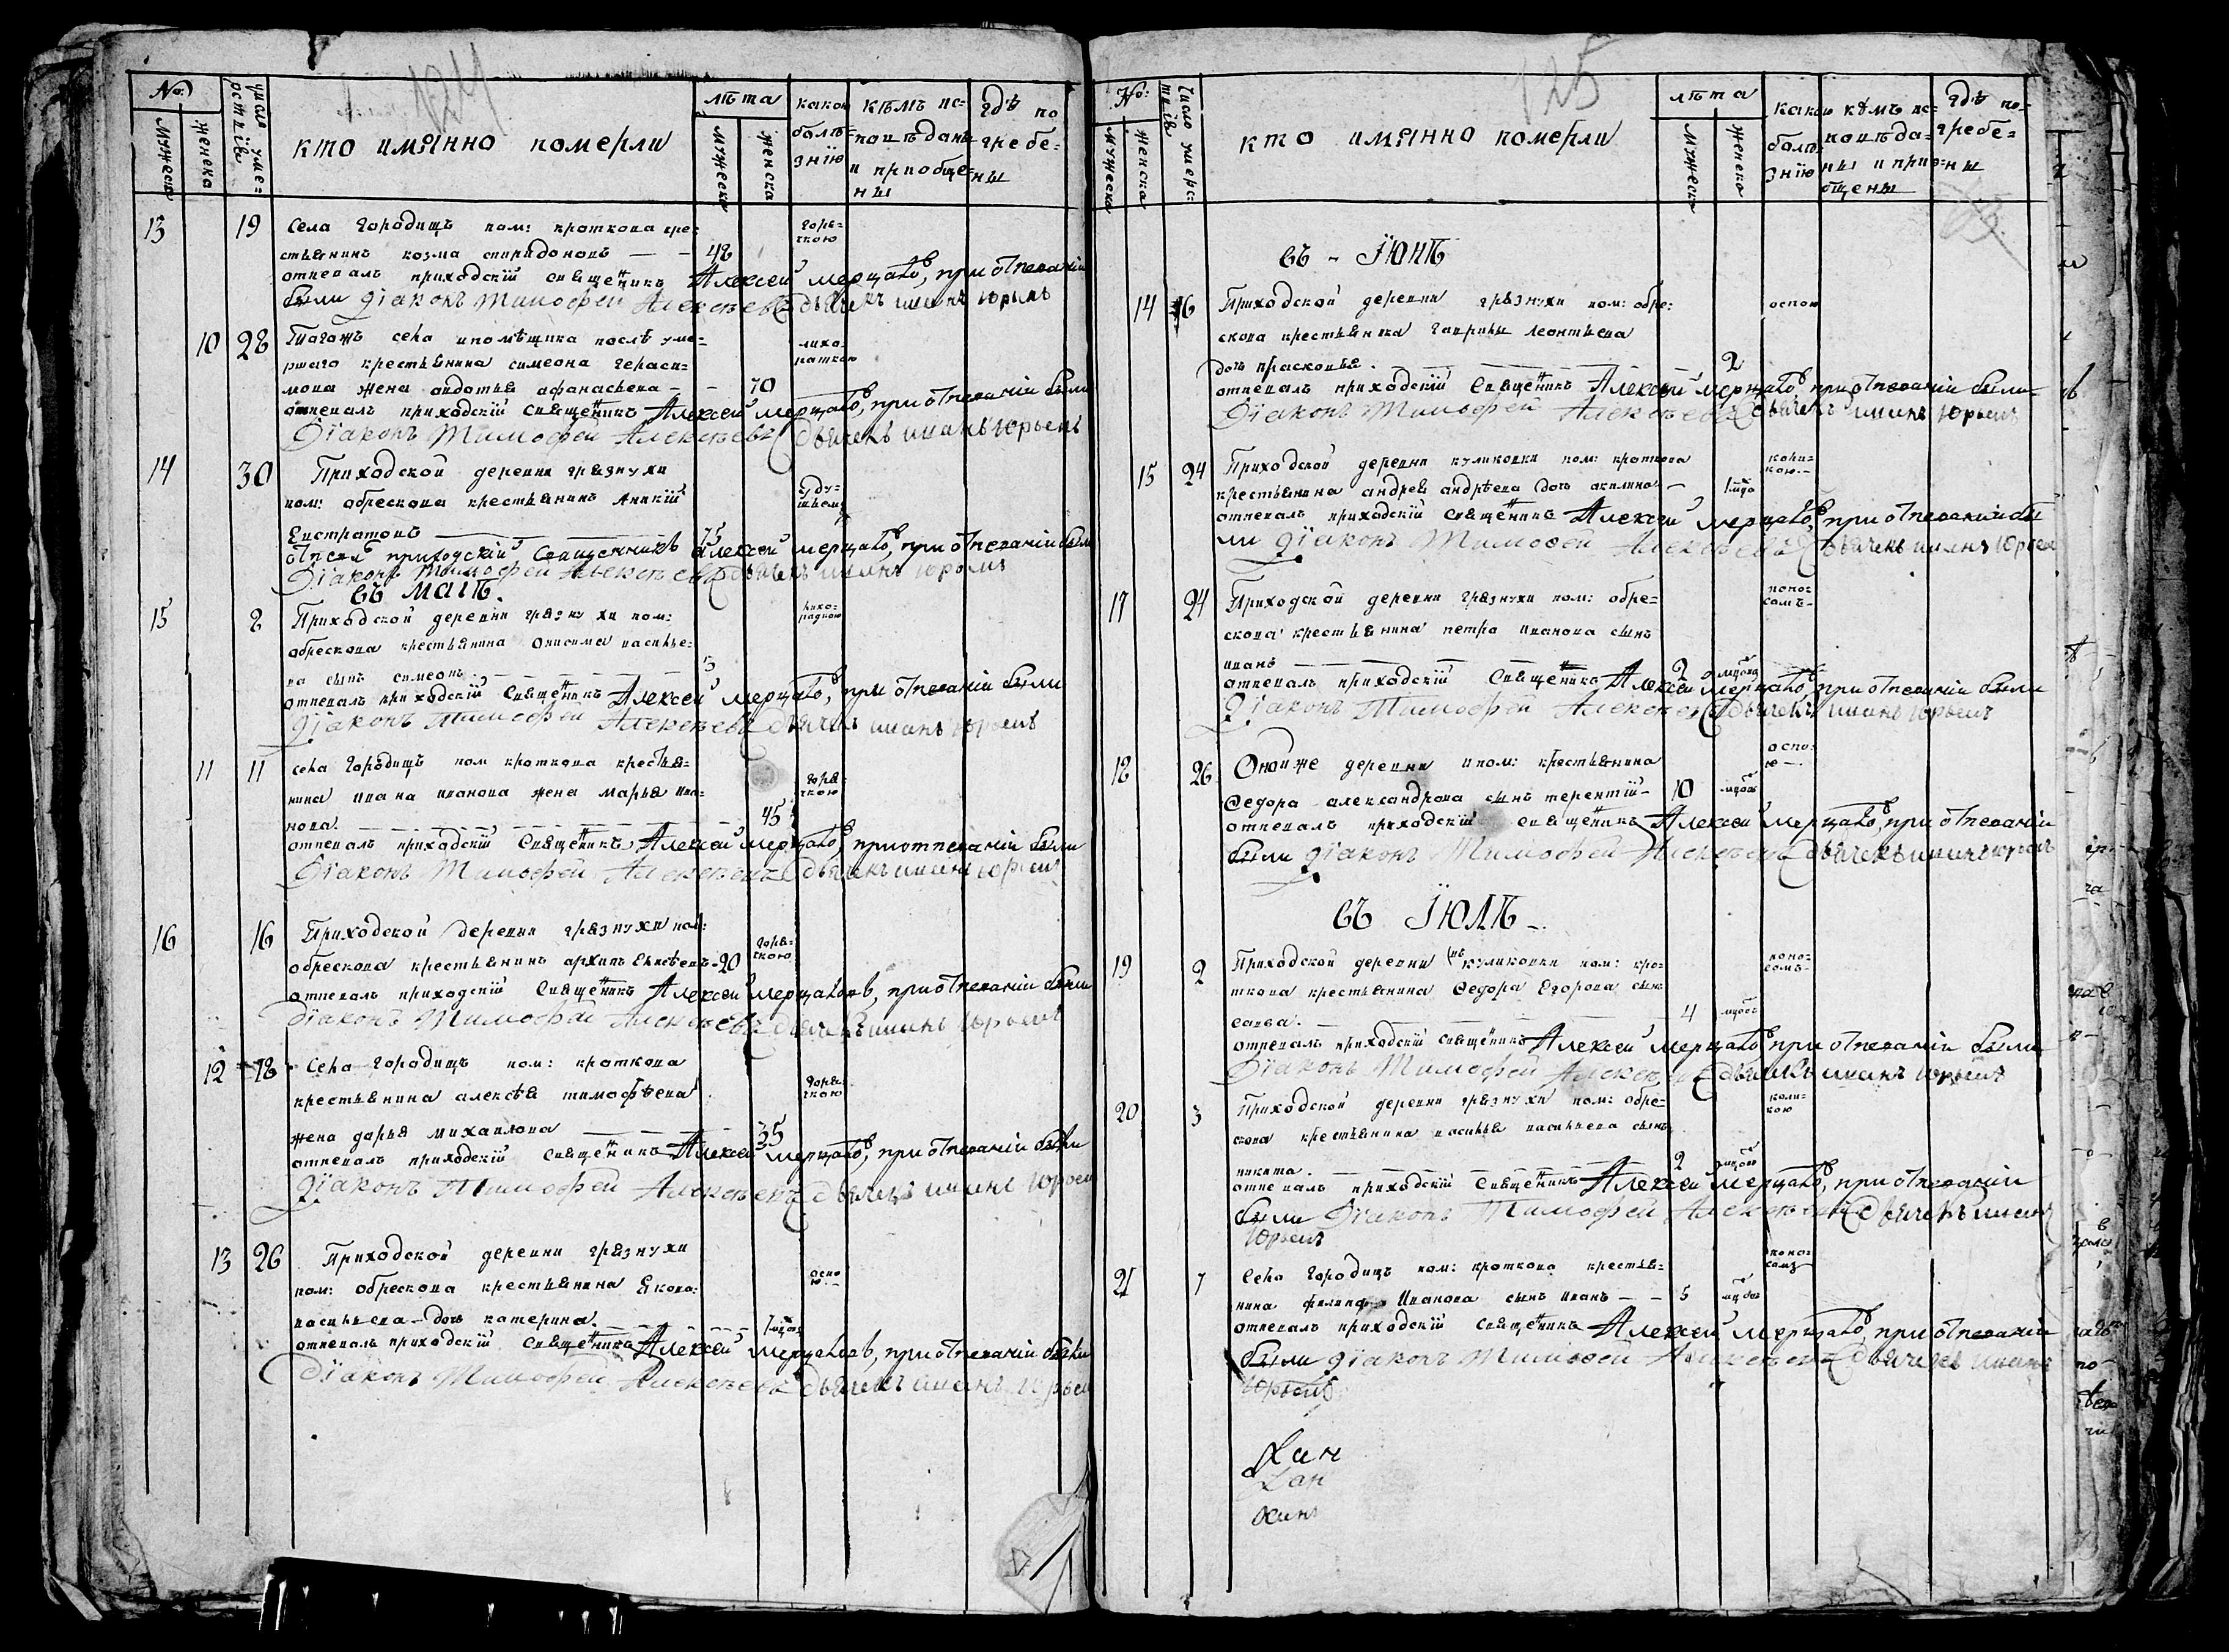 124
№
мужеска
женска
число умерствiя
кто имянно померли
лѣта
мужеска
женска
какою болѣзнiю
кѣмъ исповѣданы и приобщены
гдѣ погребены
13 19 Села Городищъ пом: кроткова кре= горя=
стьянинъ козма спиридоновъ — — 48 чкою
отпевалъ приходскiй священникъ Алексей мерцаловъ, при отпеванiи
были дiаконъ Тимофей Алексѣевъ дьячекъ иванъ юрьевъ
10 28 Тогожъ села ипомѣщика послѣ уме= лихо=
ршаго крестьянина симеона гераси= раткою
мова жена авдотья афанасьева — — 70
отпевалъ приходскiй священникъ Алексей мерцаловъ, при отпеванiи были
Дiаконъ Тимофей Алексѣевъ дьячекъ иванъ юрьевъ
14 30 Приходской деревни грязнухи
пом: обрескова крестьянинъ Аникiй уду=
шьемъ
Евстратовъ — 75
отпевалъ приходскiй священникъ Алексей мерцаловъ, при отпеванiи были
Дiаконъ Тимофей Алексѣевъ дьячекъ иванъ юрьевъ
въ маiѣ.
15 8 Приходской деревни грязнухи пом: лихо=
радкою
обрескова крестьянина Онисима василье=
ва сынъ симеонъ — 5
отпевалъ приходскiй священникъ Алексей мерцаловъ, при отпеванiи были
дiаконъ Тимофей Алексѣевъ дьячекъ иванъ юрьевъ
11 11 села Городищъ пом кроткова крестья= горя=
нина ивана иванова жена марья ива= чкою
нова. — 45
отпевалъ приходскiй священникъ Алексей мерцаловъ, при отпеванiи были
Дiаконъ Тимофей Алексѣевъ дьячекъ иванъ юрьевъ
16 16 Приходской деревни грязнухи пом: горя=
обрескова крестьянинъ архипъ Евисѣевъ 20 чкою
отпевалъ приходскiй священникъ Алексей мерцаловъ, при отпеванiи были
дiаконъ Тимофей Алексѣевъ дьячекъ иванъ юрьевъ
12 18 Села Городищъ пом: кроткова горя=
крестьянина алексѣя тимофѣева чкою
жена дарья михаилова — 35
отпевалъ приходскiй священникъ Алексей мерцаловъ, при отпеванiи были
Дiаконъ Тимофей Алексѣевъ дьячекъ иванъ юрьевъ
13 26 Приходской деревни грязнухи оспо
пом: обрескова крестьянина Якова: ю.—
васильева — дочь катерина. —
отпевалъ приходскiй священникъ Алексей мерцаловъ, при отпеванiи были
Дiаконъ Тимофей Алексѣевъ дьячекъ иванъ юрьевъ
125
№:
мужеска
женска
Число умерс=твiя
кто имянно померли
лѣта
мужеска
женска
какою болѣзнiю
кѣмъ исповѣданы и приобщены
гдѣ погребены
въ — Iюнѣ
14 16 Приходской деревни грязнухи пом: обре= оспою
скова крестьянина гаврилы леонтьева
дочь прасковья. — 2
отпевалъ приходскiй священникъ Алексей мерцаловъ при отпеванiи были
Дiаконъ Тимофей Алексѣевъ дьячекъ иванъ юрьевъ
15 24 Приходской деревни куликовки пом: кроткова коли=
кою.—
крестьянина андрея андрѣева дочь акилина —
отпевалъ приходскiй священникъ Алексей мерцаловъ, при отпеванiи бы
ли дiаконъ Тимофей Алексѣевъ дьячекъ иванъ юрьев
17 24 Приходской деревни грязнухи пом: обре= поно=
сомъ—
скова крестьянина петра иванова сынъ
иванъ — 2
отпевалъ приходскiй священникъ Алексей мерцаловъ, при отпеванiи были
Дiаконъ Тимофей Алексѣевъ дьячекъ иванъ юрьевъ
18 26 Оной же деревни ипом: крестьянина оспо=
ю—.
Ѳедора александрова сынъ терентiй — 10
отпевалъ приходскiй священникъ Алексей мерцаловъ, при отпеванiи
были дiаконъ Тимофей Алексѣевъ дьячекъ иванъ юрьевъ
въ Iюлѣ —.
19 2 Приходской деревни куликовки пом: кро= поно=
сомъ—
ткова крестьянина Ѳедора Егорова сынъ
савва. — 4
отпевалъ приходскiй священникъ Алексей мерцаловъ при отпеванiи были
Дiаконъ Тимофей Алексѣевъ дьячекъ иванъ юрьевъ
20 3 Приходской деревни грязнухи пом: обре= коли=
кою
скова крестьянина василья васильева сынъ
никита. — 2
отпевалъ приходскiй священникъ Алексей мерцаловъ, при отпеванiи
были Дiаконъ Тимофей Алексѣевъ дьячекъ иванъ
юрьевъ
21 7 Села Городищъ пом: кроткова крестья= поно=
сомъ
нина филипа Иванова сынъ иванъ — — 5
отпевалъ приходскiй священникъ Алексей мерцаловъ, при отпеванiи
были дiаконъ Тимофей Алексѣевъ дьячекъ иванъ
юрьевъ